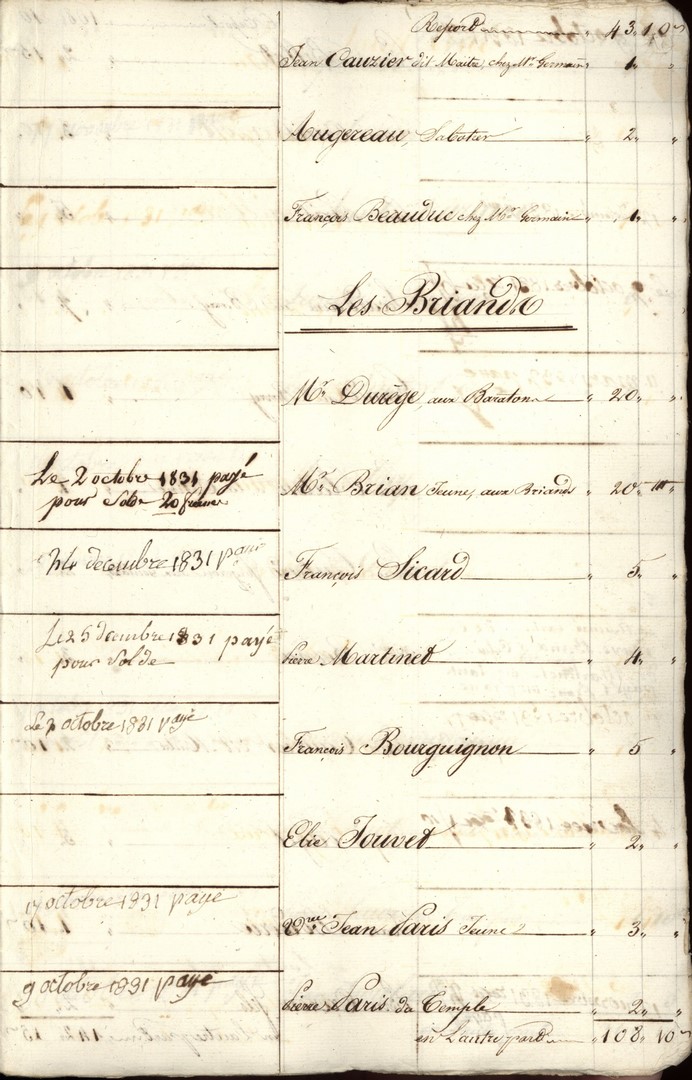 Report " 43 " 10 "
Jean Cauzier dit Maitre, chez Mr. Germain " 1 " "
Augereau, Sabotier " 2 " "
François Beauduc chez Mr. Germain " 1 " "
Les Briands
Mr. Durège, aux Baratons " 20 " "
Le 2 octobre 1831 payé
pour Solde 20 francs
Mr. Brian Jeune, aux Briands " 20 " "
24 decembre 1831 payé
François Sicard " 5 " "
Le 25 decembre 1831 payé
pour Solde
Pierre Martinet " 4 " "
Le 2 octobre 1831 payé
François Bourguignon " 5 "
Elie Jouvet " 2 " "
17 octobre 1831 payé
Vve. Jean Paris Jeune " 3 " "
9 octobre 1831 payé
Pierre Paris du Temple " 2 " "
en l'autre part " 108 " 10 "